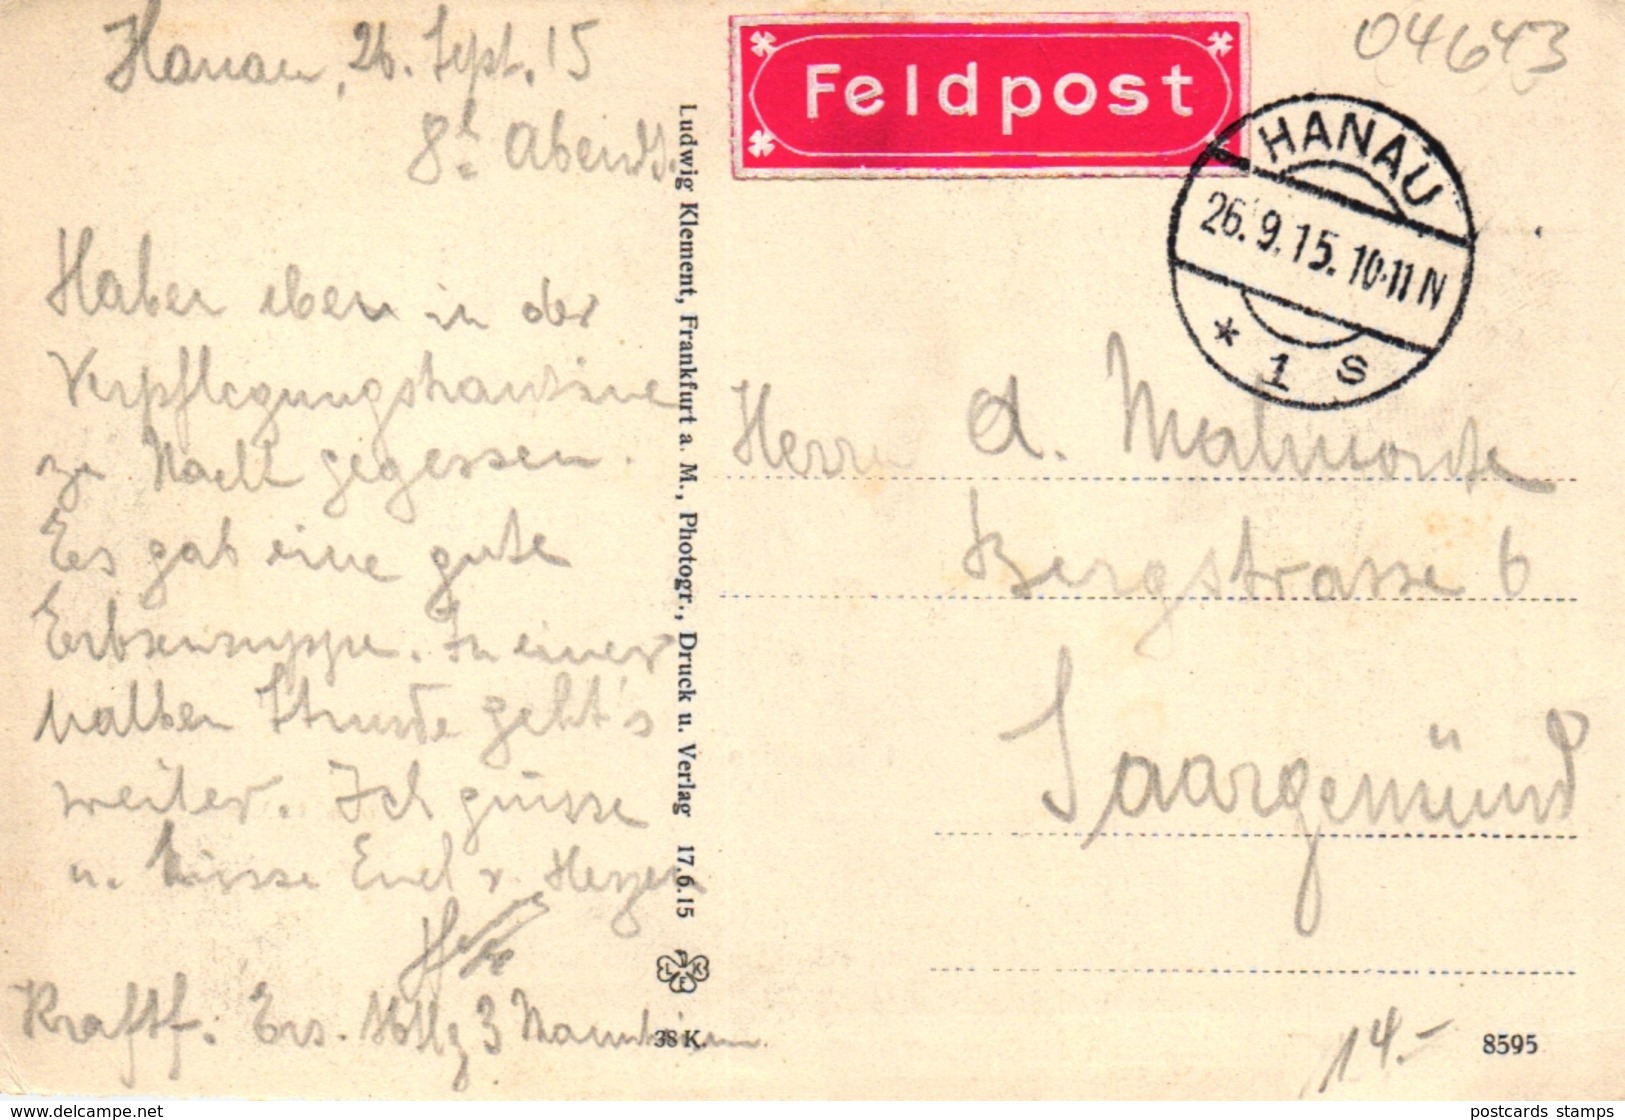 Hanau, 26. Sept. 15
8h Abends.
Haben eben in der
Verpflegungskantine
zu Nacht gegessen.
Es gab eine gute
Erbsensuppe. In einer
halben Stunde geht's
weiter. Ich grüsse
u. küsse Euch v. Herzen
Kraftf. Ers. Abtlg 3 Mannheim.
Ludwig Klement, Frankfurt a. M., Photogr., Druck u. Verlag 17.6.15
38 K.
Feldpost
04643
HANAU
26.9.15. 10-11 N
* 1 S
Herrn A.
Bergstrasse 6
Saargemünd
14.-
8595
postcards stamps